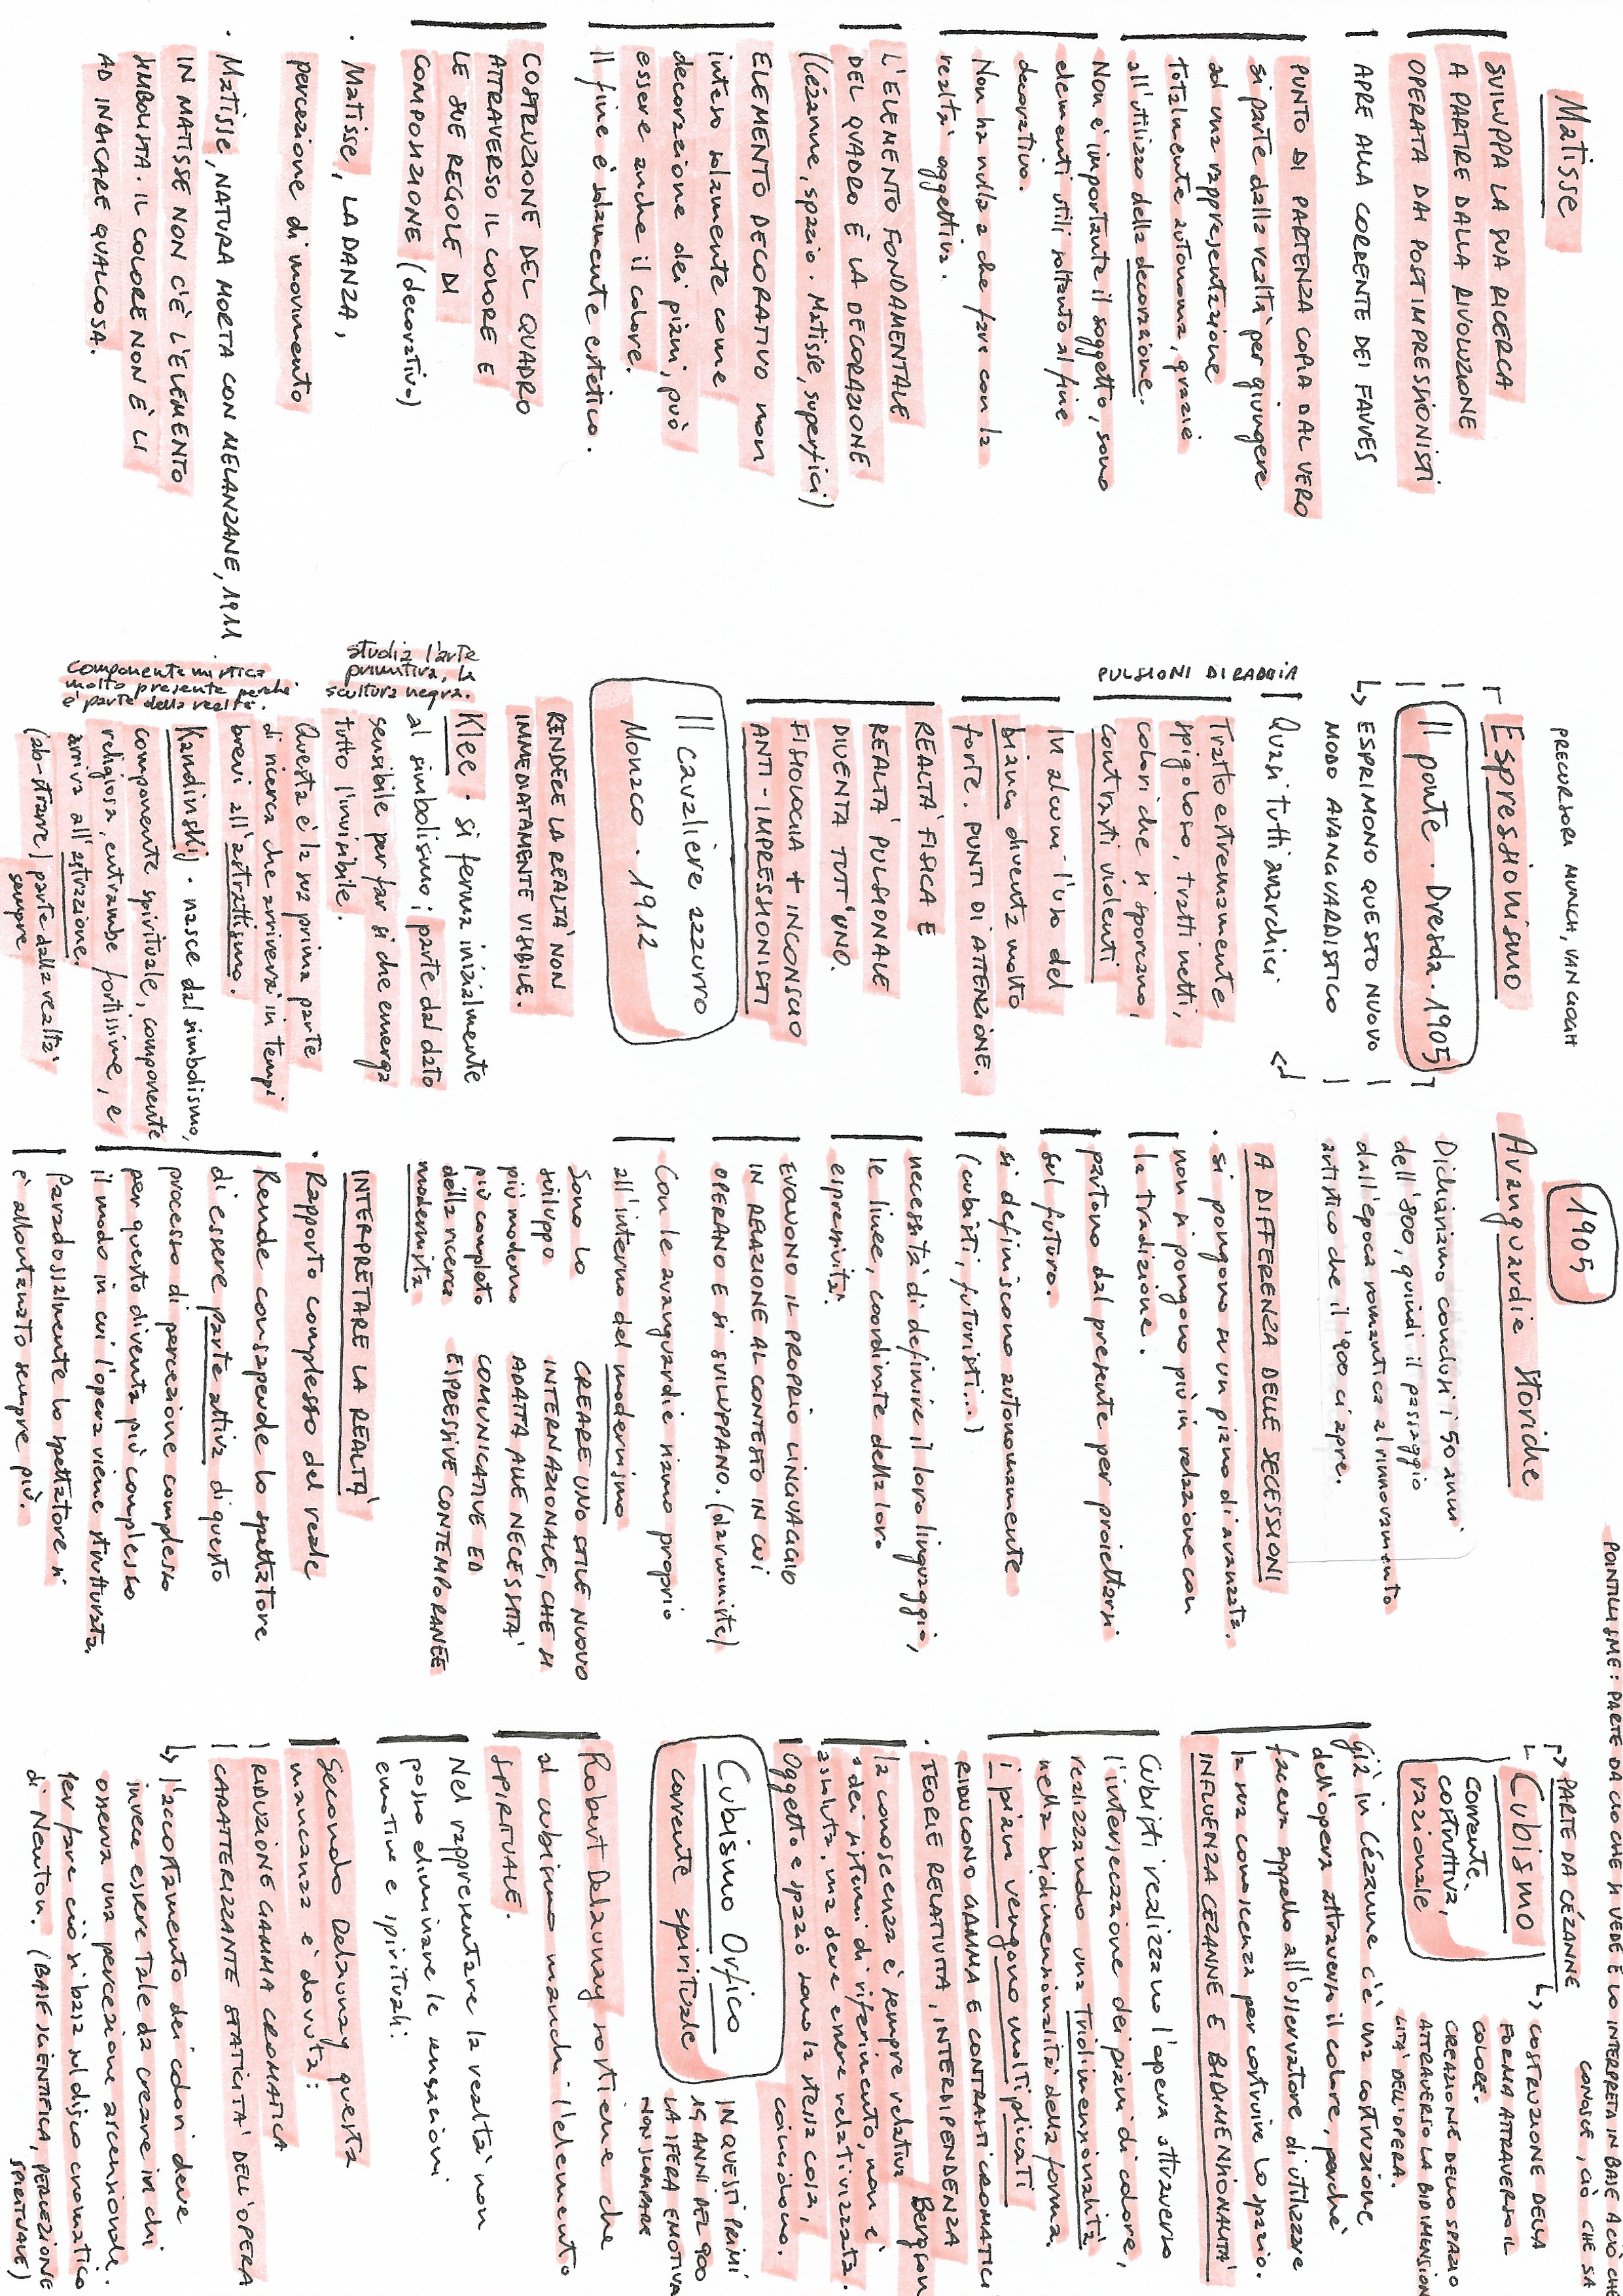 Matisse
SVILUPPA LA SUA RICERCA
A PARTIRE DALLA RIVOLUZIONE
OPERATA DAI POSTIMPRESSIONISTI
APRE ALLA CORRENTE DEI FAUVES
PUNTO DI PARTENZA COPIA DAL VERO
si parte dalla realtà per giungere
ad una rappresentazione
totalmente autonoma, grazie
all'utilizzo della decorazione.
Non è importante il soggetto, sono
elementi utili soltanto al fine
decorativo.
Non ha nulla a che fare con la
realtà oggettiva.
L'ELEMENTO FONDAMENTALE
DEL QUADRO È LA DECORAZIONE
(Cézanne, spazio. Matisse, superfici)
ELEMENTO DECORATIVO non
inteso solamente come
decorazione dei piani, può
essere anche il colore.
Il fine è solamente estetico.
COSTRUZIONE DEL QUADRO
ATTRAVERSO IL COLORE E
LE SUE REGOLE DI
COMPOSIZIONE (decorativo)
· Matisse, LA DANZA,
percezione di movimento
· Matisse, NATURA MORTA CON MELANZANE, 1911
IN MATISSE NON C'È L'ELEMENTO
SIMBOLISTA. IL COLORE NON È LI
AD INDICARE QUALCOSA.
PRECURSORI MUNCH, VAN GOGH
Espressionismo
Il ponte · Dresda · 1905
ESPRIMONO QUESTO NUOVO
MODO AVANGUARDISTICO
Quasi tutti anarchici
PULSIONI DI RABBIA
Tratto estremamente
spigoloso, tratti netti,
colori che si sporcano,
contrasti violenti
In alcuni l'uso del
bianco diventa molto
forte. PUNTI DI ATTENZIONE.
REALTÀ FISICA E
REALTÀ PULSIONALE
DIVENTA TUTT'UNO.
FISIOLOGIA + INCONSCIO
ANTI-IMPRESSIONISTI
Il cavaliere azzurro
Monaco · 1912
RENDERE LA REALTÀ NON
IMMEDIATAMENTE VISIBILE.
Klee · si ferma inizialmente
al simbolismo; parte dal dato
sensibile per far si che emerga
tutto l'invisibile.
Questa è la sua prima parte
di ricerca che arriverà in tempi
brevi all'astrattismo.
studia l'arte
primitiva, la
scultura negra.
Kandinskij · nasce dal simbolismo,
componente spirituale, componente
religiosa, entrambe fortissime, e
arriva all'astrazione.
(ab-strarre) parte dalla realtà
sempre
componente mistica
molto presente perché
è parte della realtà.
1905
Avanguardie Storiche
Dichiariamo conclusi i 50 anni
dell'800, quindi il passaggio
dall'epoca romantica al rinnovamento
artistico che il '900 ci apre.
A DIFFERENZA DELLE SECESSIONI
· si pongono su un piano di avanzata.
non si pongono più in relazione con
la tradizione.
partono dal presente per proiettarsi
sul futuro.
si definiscono autonomamente
(cubisti, futuristi...)
necessità di definire il loro linguaggio,
le linee, coordinate della loro
espressività.
EVOLVONO IL PROPRIO LINGUAGGIO
IN RELAZIONE AL CONTESTO IN CUI
OPERANO E SI SVILUPPANO. (darwiniste)
Con le avanguardie siamo proprio
all'interno del modernismo
Sono lo
sviluppo
più moderno
più completo
della ricerca
modernista
CREARE UNO STILE NUOVO
INTERNAZIONALE, CHE SI
ADATTA ALLE NECESSITÀ
COMUNICATIVE ED
ESPRESSIVE CONTEMPORANEE
INTERPRETARE LA REALTÀ
· Rapporto complesso del reale
Rende consapevole lo spettatore
di essere parte attiva di questo
processo di percezione complesso
per questo diventa più complesso
il modo in cui l'opera viene strutturata.
Paradossalmente lo spettatore si
è allontanato sempre più.
POINTILLISME: PARTE DA CIO CHE SI VEDE E LO INTERPRETA IN BASE A CIÒ CHE
CONOSCE, CIÒ CHE SA
PARTE DA CÉZANNE
Cubismo
corrente
costruttiva,
razionale
COSTRUZIONE DELLA
FORMA ATTRAVERSO IL
COLORE.
CREAZIONE DELLO SPAZIO
ATTRAVERSO LA BIDIMENSION
LITÀ DELL'OPERA.
Già in Cézanne c'è una costruzione
dell'opera attraverso il colore, perchè
faceva appello all'osservatore di utilizzare
la sua conoscenza per costruire lo spazio.
INFLUENZA CEZANNE E BIDIMENSIONALITÀ
Cubisti realizzano l'opera attraverso
l'intersecazione dei piani di colore,
realizzando una tridimensionalità
nella bidimensionalità della forma.
i piani vengono moltiplicati
RIDUCONO GAMMA E CONTRASTI CROMATICI
· TEORIE RELATIVITÀ, INTERDIPENDENZA
Bergson
la conoscenza è sempre relativa
a dei sistemi di riferimento, non è
assoluta, ma deve essere relativizzata.
Oggetto e spazio sono la stessa cosa,
coincidono.
Cubismo Orfico
corrente spirituale
IN QUESTI PRIMI
15 ANNI DEL 900
LA SFERA EMOTIVA
NON SCOMPARE
Robert Delaunay sostiene che
al cubismo manchi l'elemento
SPIRITUALE.
Nel rappresentare la realtà non
posso eliminare le sensazioni
emotive e spirituali.
Secondo Delaunay questa
mancanza è dovuta:
RIDUZIONE GAMMA CROMATICA
CARATTERIZZANTE STATICITÀ DELL'OPERA
l'accostamento dei colori deve
invece essere tale da creare in chi
osserva una percezione ascensionale.
Per fare ciò si basa sul disco cromatico
di Newton. (BASE SCIENTIFICA, PERCEZIONE
SPIRITUALE)